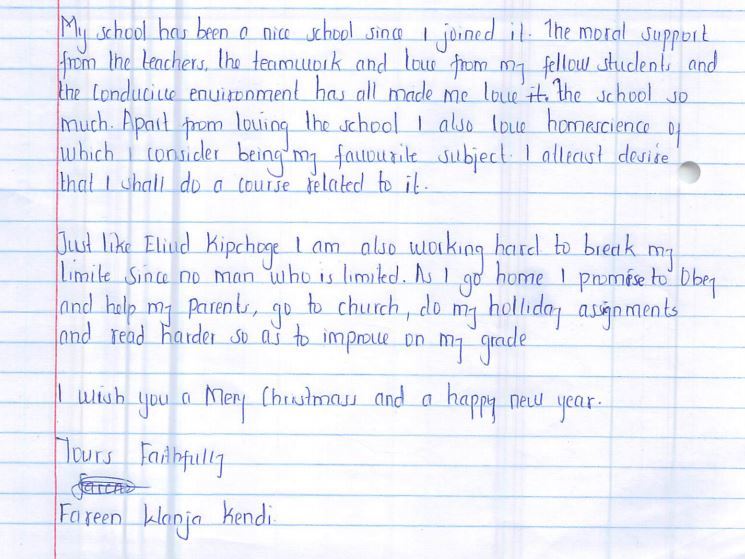 My school has been a nice school since I joined it. The moral support
from the teachers, the teamwork and love from my fellow students and
the conducive environment has all made me love it. the school so
much. Apart from loving the school I also love homescience of
which I consider being my favourite subject. I atleast desire
that I shall do a course related to it.
Just like Eliud Kipchoge I am also working hard to break my
limite since no man who is limited. As I go home I promise to Obey
and help my parents, go to church, do my holliday assignments
and read harder so as to improve on my grade
I wish you a Merry Christmass and a happy new year.
Yours Faithfully
Fareen Wanja Kendi.